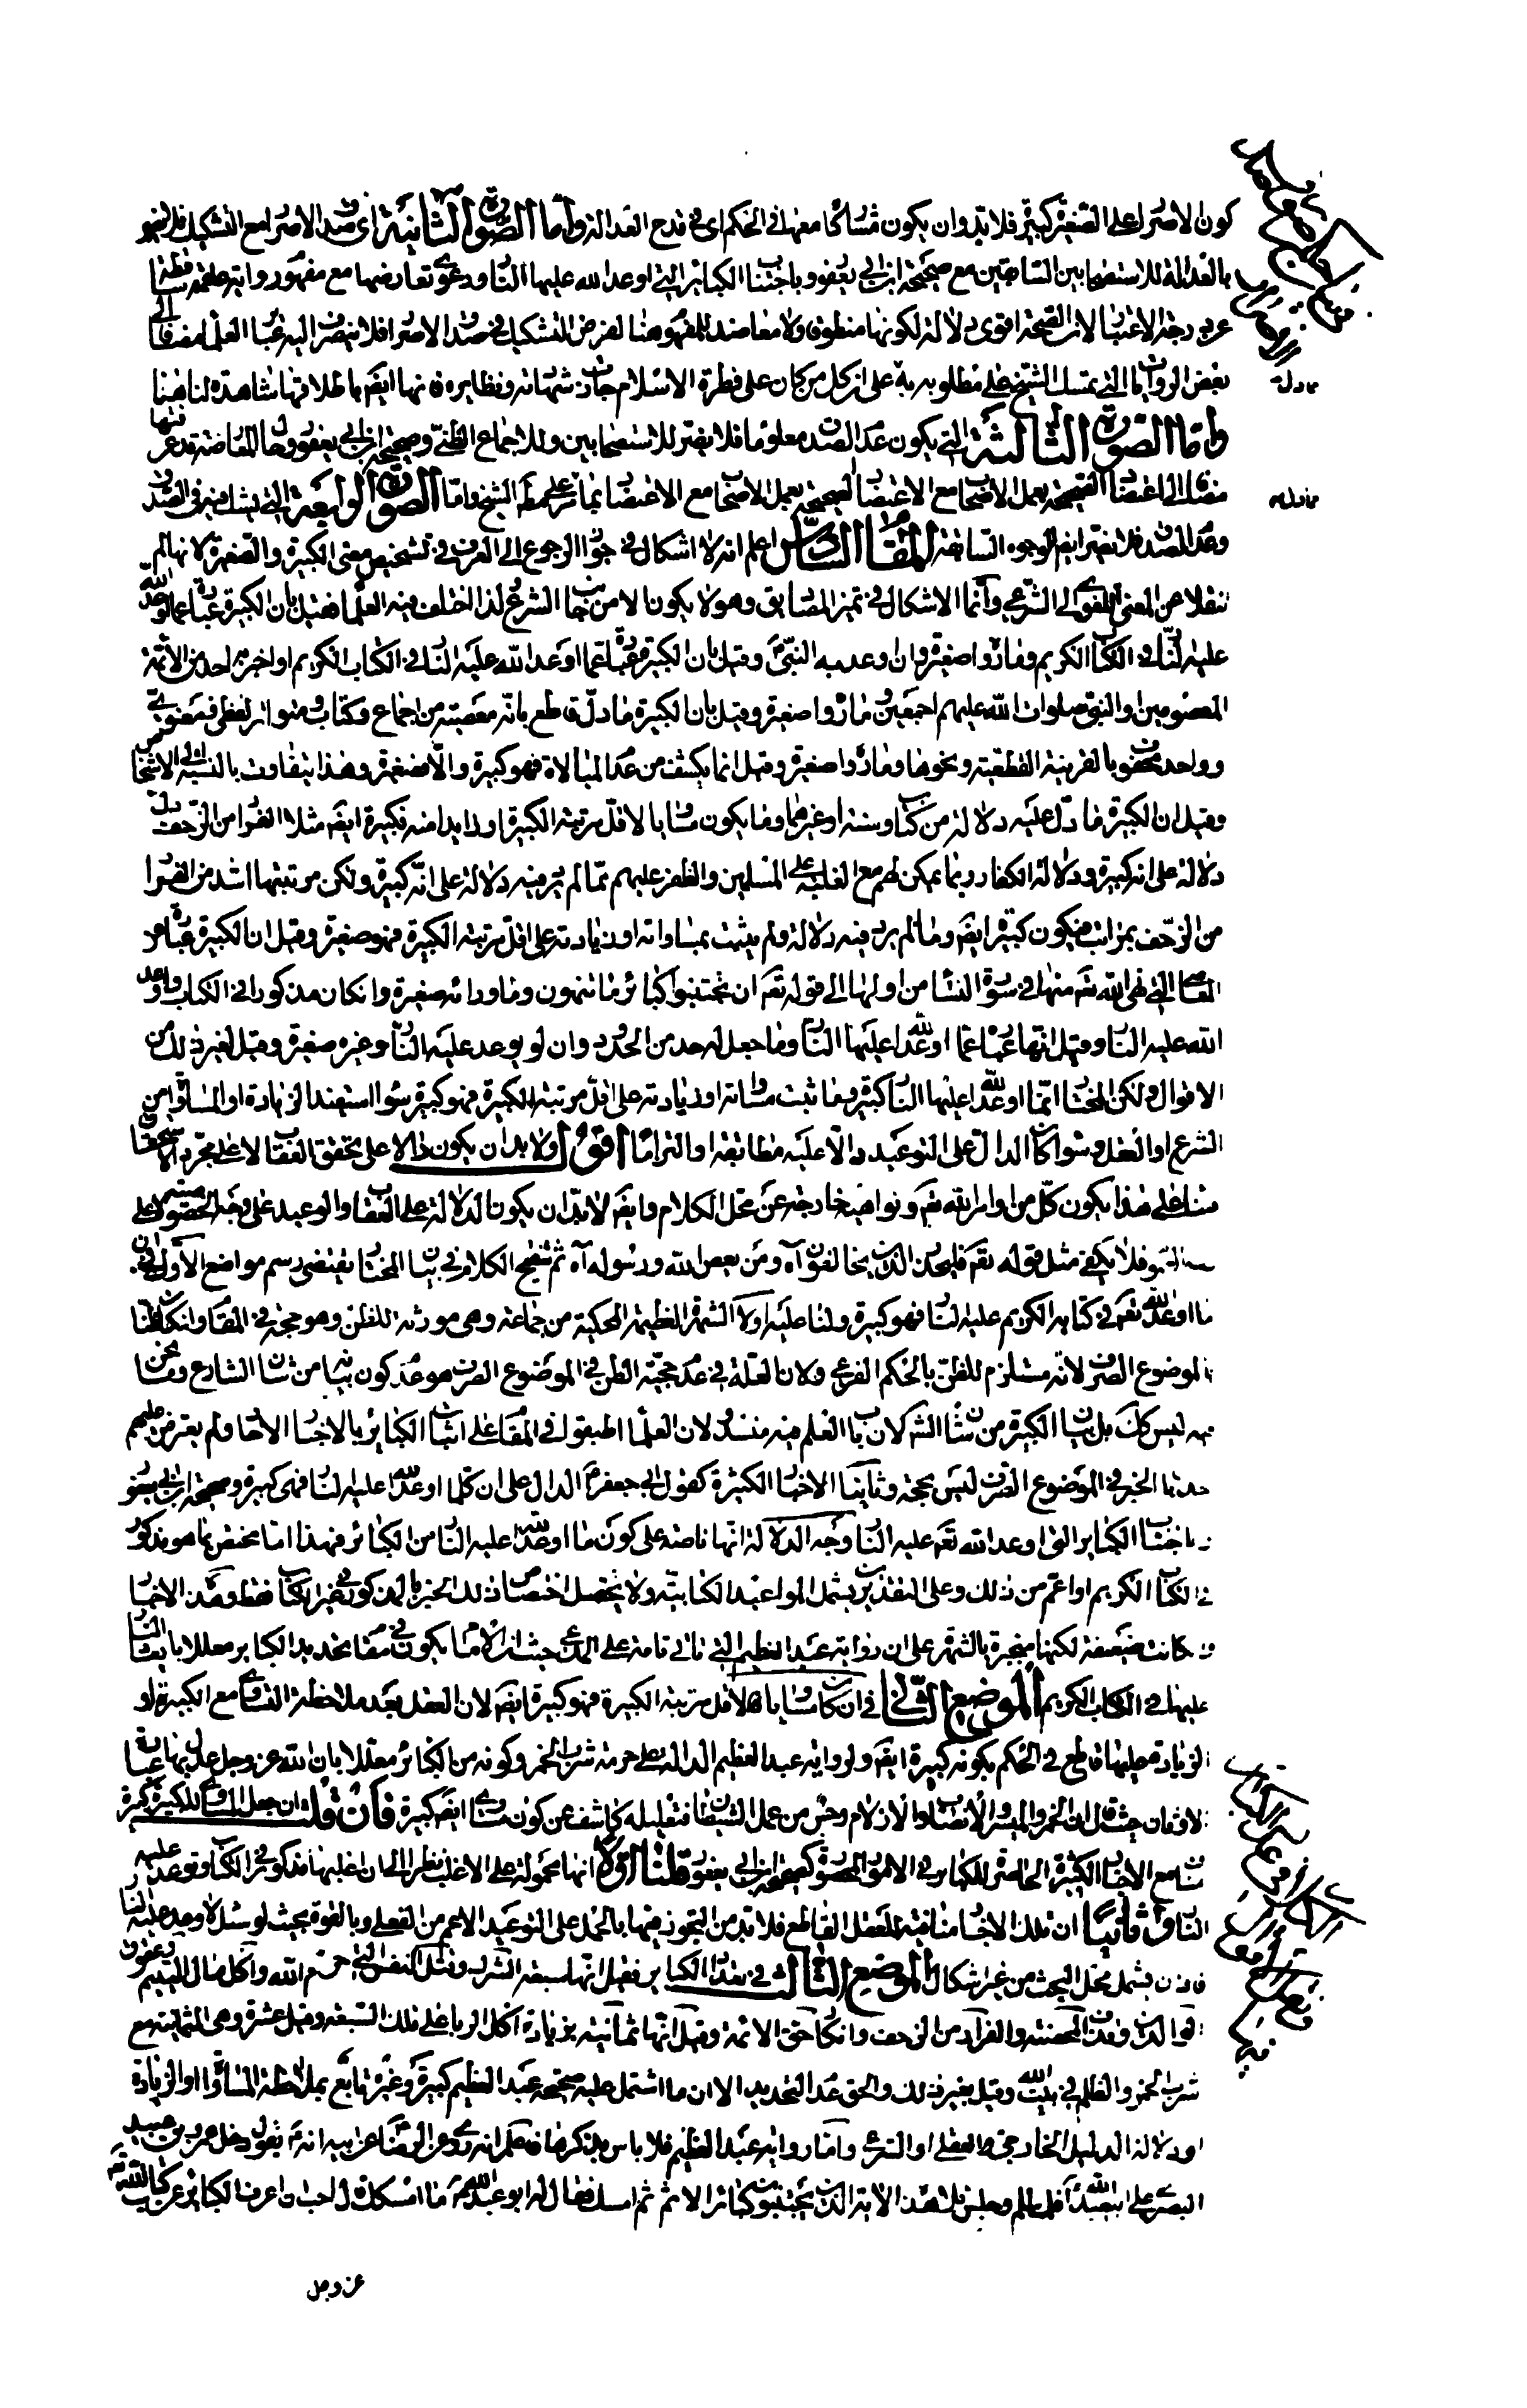 كون الاصرار على الصغيرة كبيرة فلا بد وان يكون مشاركا معها في الحكم اى في قدح العدالة واما الصورة الثانية اى صدق الاصرار مع التشكيك فلا يضر
بالعدالة للاستصحابين السابقين مع صحيحة ابن ابى يعفور باجتناب الكبائر التي اوعد الله عليها النار ودعوى تعارضها مع مفهوم رواية علقمة
عن درجة الاعتبار لان الصحيحة اقوى دلالة لكونها منطوق ولا معاضد للمفهوم هنا لفرض التشكيك في صدق الاصرار فلا ينصرف اليه
بعض الروايات التي تمسك الشيخ على مطلوبه به على ان كل من كان على فطرة الاسلام جازت شهاداته ونظايره فانها ايضا باطلاقها شاهدة لنا هنا
واما الصورة الثالثة التي يكون عدم الصدق معلوما فلا يضر للاستصحابين وللاجماع الظني وصحيحة ابن ابى يعفور وحال المعارضة قد عرفتها
مضافا الى اعتضاد الصحيحة بعمل الاصحاب مع الاعتضاد بما تمسك على مطلبه الشيخ واما الصورة الرابعة التي يشك فيه في الصدق
وعدم الصدق فلا يضر ايضا للوجوه السابقة المقام السادس اعلم انه لا اشكال في جواز الرجوع الى العرف في تشخيص معنى الكبيرة والصغيرة لانها لم
تنقلا عن المعنى اللغوى الى الشرعي وانما الاشكال في تميز المصاديق وهو لا يكون الا من جانب الشرع لذا اختلف فيه العلماء فقيل بان الكبيرة عبارة عما اوعد الله
عليه النار في الكتاب الكريم وما زاد صغيرة وان وعد به النبي وقيل بان الكبيرة عبارة عما اوعد الله عليه النار في الكتاب الكريم او اخبر به احد من الائمة
المعصومين او النبي صلوات الله عليهم اجمعين وما زاد صغيرة وقيل بان الكبيرة ما دل قاطع بانه معصيته من اجماع وكتاب ومتواتر لفظي ومعنوى
وواحد محفوف بالقرينة القطعية ونحوها وما زاد صغيرة وقيل انما يكشف من عدم المبالاة فهو كبيرة والا صغيرة وهذا يتفاوت بالنسبة الى الاشخاص
وقيل ان الكبيرة ما دل عليه دلالة من كتاب وسنة او غيرهما وما يكون مساويا لاقل مرتبة الكبيرة او زايدا منه فكبيرة ايضا مثلا الفرار من الزحف
دلالة على انه كبيرة ودلالة الكفار وبما يمكن لهم مع الغلبة على المسلمين والظفر عليهم مما لم يرد فيه دلالة على انه كبيرة ولكن مرتبتها اشد من الفرار
من الزحف بمراتب فيكون كبيرة ايضا وما لم يرد فيه دلالة ولم يثبت بمساواته او زيادته على اقل مرتبة الكبيرة فهو صغيرة وقيل ان الكبيرة عبارة عن
المعاصي التي نهى الله تعم منها في سورة النساء من اولها الى قوله تعم ان تجتنبوا كبائر ما تنهون وما ورائه صغيرة وان كان مذكورا في الكتاب واوعد
الله عليه النار وقيل انها عبارة عما اوعد الله عليها النار وما جعل له حد من الحدود وان لو يوعد عليه النار وغيره صغيرة وقيل لغير ذلك من
الاقوال ولكن المختار انما اوعد الله عليها النار كبيرة وما ثبت مساواته او زيادته على اقل مرتبة الكبيرة فهو كبيرة سواء استفيد الزيادة او المساواة من
الشرع او العقل وسواء كان الدال على التوعيد دالا عليه مطابقة او التزاما اقول ولا بد ان يكون دالا على تحقق العقاب لا على مجرد الاستحقاق
على هذا يكون كل من اوامر الله تعم ونواهيه خارجة عن محل الكلام وايضا لا بد ان يكون الدلالة على العقاب والوعيد على وجه الخصوص لا على
فلا يكفي مثل قوله تعم فليحذر الذين يخالفون آه ومن يعص الله ورسوله آه ثم تنقيح الكلام في بيان المختار يقتضى رسم مواضع الاول في
ما اوعد الله تعم في كتابه الكريم عليه النار فهو كبيرة ولنا عليه اولا الشهرة العظيمة المحكية من جماعة وهى مورثة للظن وهو حجة في المقام وان كان ظنا
بالموضوع الصرف لانه مستلزم للظن بالحكم الفرعي ولان العلة في عدم حجية الظن في الموضوع الصرف هو عدم كون بيانه من شان الشارع وما نحن
فيه ليس كك بل بيان الكبيرة من شان الشرع ولان باب العلم فيه منسد ولان العلماء اطبقوا في المقام على اثبات الكبائر بالاخبار الاحاد ولم يعترض عليهم
احد بان الخبر في الموضوع الصرف ليس بحجة وثانيا الاخبار الكثيرة كقول ابى جعفر الدال على ان كلما اوعد الله عليه النار فهى كبيرة وصحيحة ابن ابى يعفور
باجتناب الكبائر التي اوعد الله تعم عليه النار وجه الدلالة انها ناصة على كون ما اوعد الله عليه النار من الكبائر فهذا اما مختص بما هو مذكور
في الكتاب الكريم او اعم من ذلك وعلى التقديرين يشمل المواعيد الكتابية ولا يحتمل اختصاص ذلك الخبر بالمذكور في غير الكتاب فقط وهذه الاخبار
وان كانت ضعيفة لكنها منجبرة بالشهرة على ان رواية عبد العظيم التي تاتى تامة على المدعى حيث ان الامام يكون في مقام تحديد الكبائر معللا بايعاد النار
عليها في الكتاب الكريم الموضع الثاني في ان كل ما كان مساويا لاقل مرتبة الكبيرة فهو كبيرة ايضا لان العقل بعد ملاحظة التساوى مع الكبيرة او
الزيادة عليها قاطع في الحكم بكونه كبيرة ايضا ولرواية عبد العظيم الدالة على حرمة شرب الخمر وكونه من الكبائر معللا بان الله عز وجل عدل بها عبادة
الاوثان حيث قال انما الخمر والميسر والانصاب والازلام رجس من عمل الشيطان فتعليله كاشف عن كون مساوى الكبيرة ايضا كبيرة فان قلت ان جعل المساوى للكبيرة كبيرة
ينافي مع الاخبار الكثيرة الحاصرة للكبائر في الامور المحصورة كصحيحة ابن ابى يعفور قلنا اولا انها محمولة على الاغلب نظرا الى ان اغلبها مذكور في الكتاب وتوعد عليه
النار وثانيا ان تلك الاخبار منافية للعقل القاطع فلا بد من التجوز فيها بالحمل على التوعيد الاعم من الفعلى وبالقوة بحيث لو سئل لاوعد عليه النار
فاذن يشمل محل البحث من غير اشكال الموضع الثالث في تعداد الكبائر فقيل انها سبعة الشرك وقتل النفس التي حرم الله واكل مال اليتيم وعقوق
الوالدين وقذف المحصنة والفرار من الزحف وانكار حق الائمة وقيل انها ثمانية بزيادة اكل الربا على تلك السبعة وقيل عشرة وهى الثمانية مع
شرب الخمر والظلم في بيت الله وقيل بغير ذلك والحق عدم التحديد الا ان ما اشتمل عليه صحيحة عبد العظيم كبيرة وغيره تابع بملاحظة المساواة او الزيادة
او دلالة الدليل الخارجى العقلى او الشرعى واما رواية عبد العظيم فلا باس بذكرها فاعلم انه روى عن الرضا عن ابيه انه يقول دخل عمرو بن عبيد
البصرى على ابى عبد الله فلما سلم وجلس تلا هذه الاية الذين يجتنبون كبائر الاثم ثم امسك فقال له ابو عبد الله ما امسكك قال احب ان اعرف الكبائر من كتاب الله
عز وجل